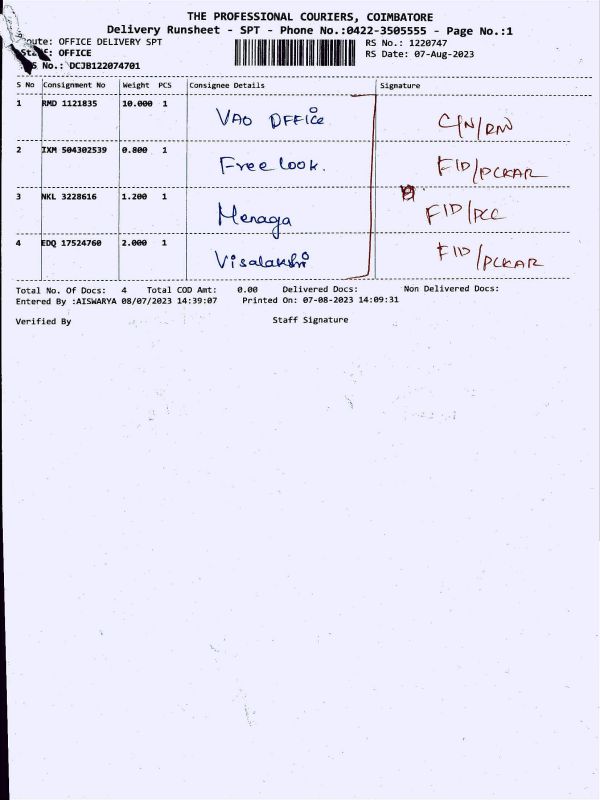 THE PROFESSIONAL COURIERS, COIMBATORE
Delivery Runsheet - SPT - Phone No.:0422-3505555 - Page No.:1
Route: OFFICE DELIVERY SPT RS No.: 1220747
Staff: OFFICE RS Date: 07-Aug-2023
No.: DCJB122074701
S No Consignment No Weight PCS Consignee Details Signature
1 RMD 1121835 10.000 1 VAO OFFice C/N/RN
2 IXM 504302539 0.800 1 Free look. FID/PCKAR
3 NKL 3228616 1.200 1 Menaga FID/PCC
4 EDQ 17524760 2.000 1 Visalakshi FID/PCKAR
Total No. Of Docs: 4 Total COD Amt: 0.00 Delivered Docs: Non Delivered Docs:
Entered By :AISWARYA 08/07/2023 14:39:07 Printed On: 07-08-2023 14:09:31
Verified By Staff Signature